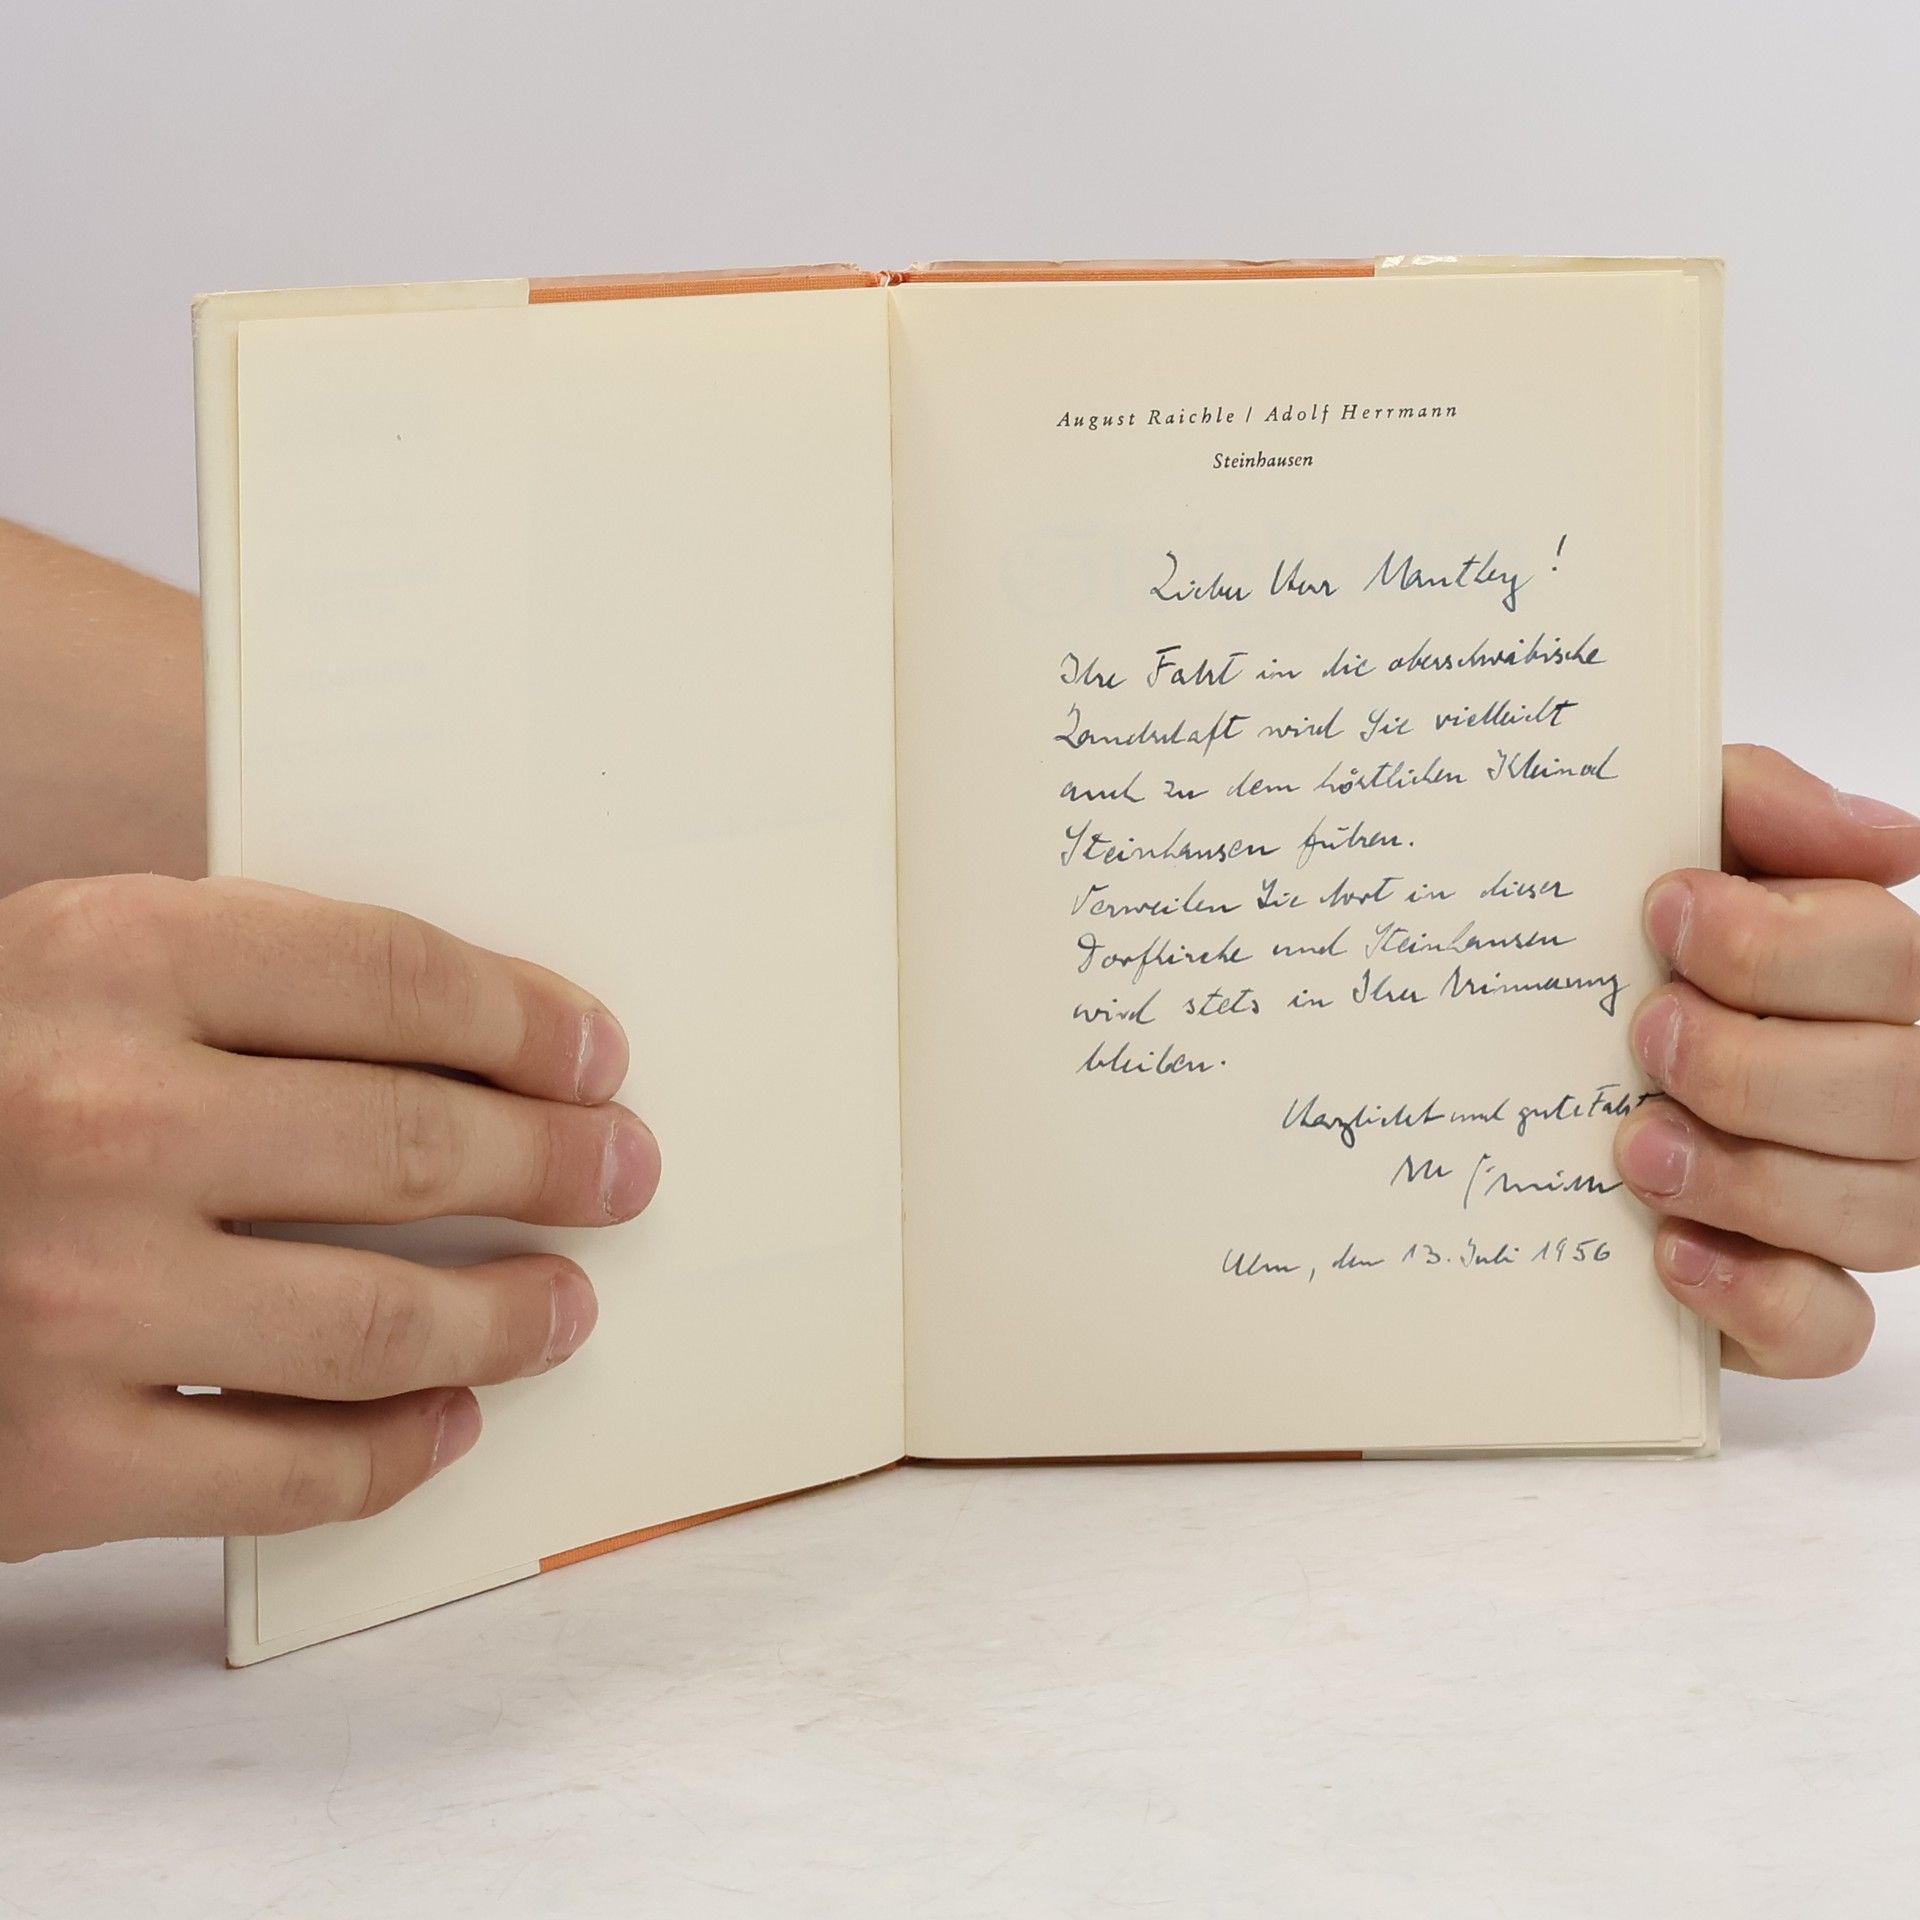 August Raichle / Adolf Herrmann
Steinhausen
Lieber Herr Manthey!
Ihre Fahrt in die oberschwäbische
Landschaft wird Sie vielleicht
auch zu dem köstlichen Kleinod
Steinhausen führen.
Verweilen Sie dort in dieser
Dorfkirche und Steinhausen
wird stets in Ihrer Erinnerung
bleiben.
Herzlichst und gute Fahrt
Ulm, den 13. Juli 1956